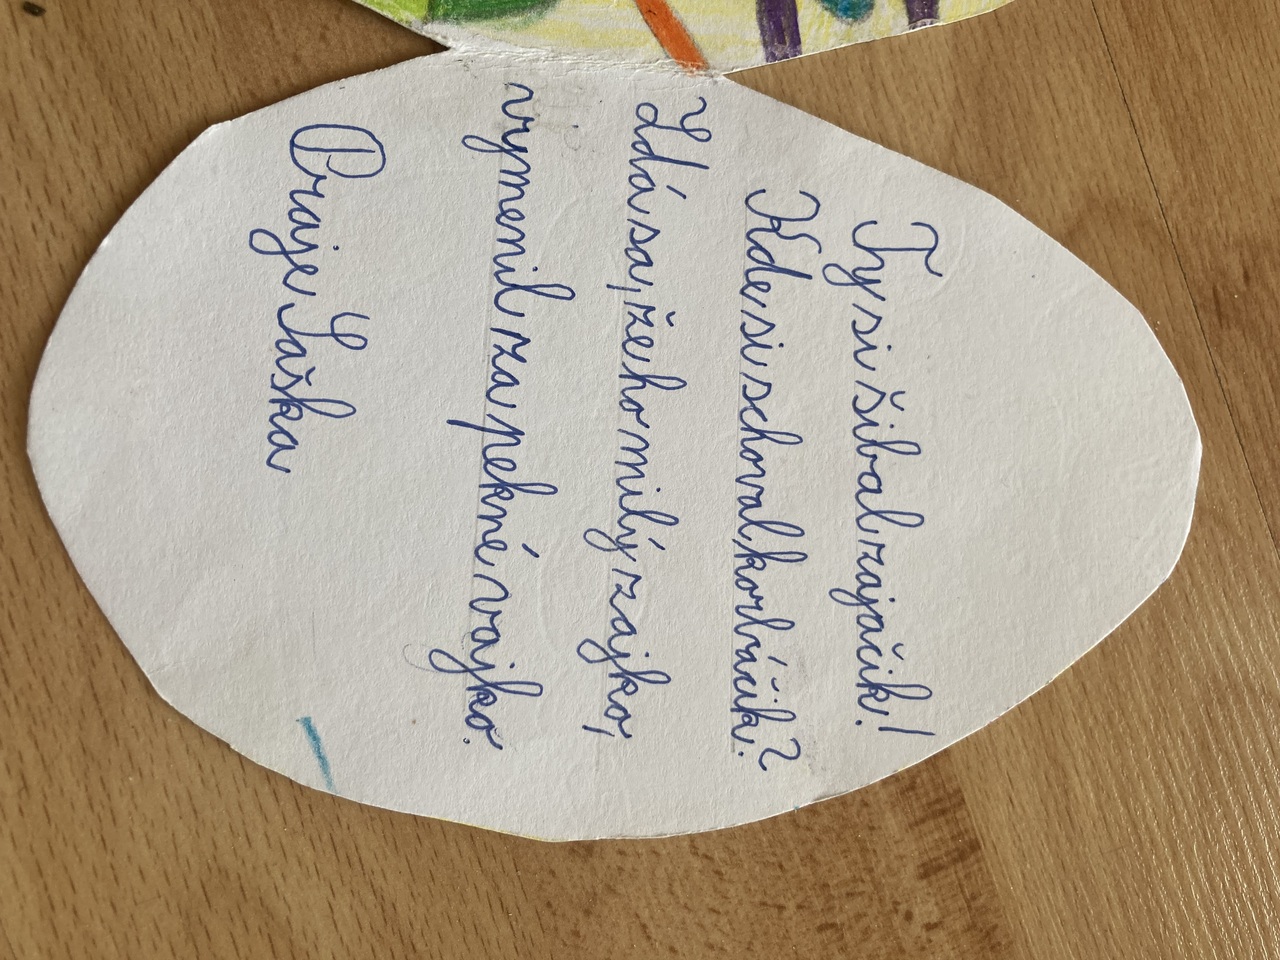 Ty si šibal, zajačik!
Kde si schoval korbáčik?
Zdá sa, že ho milý zajko,
vymenil za pekné vajko.
Praje Saška